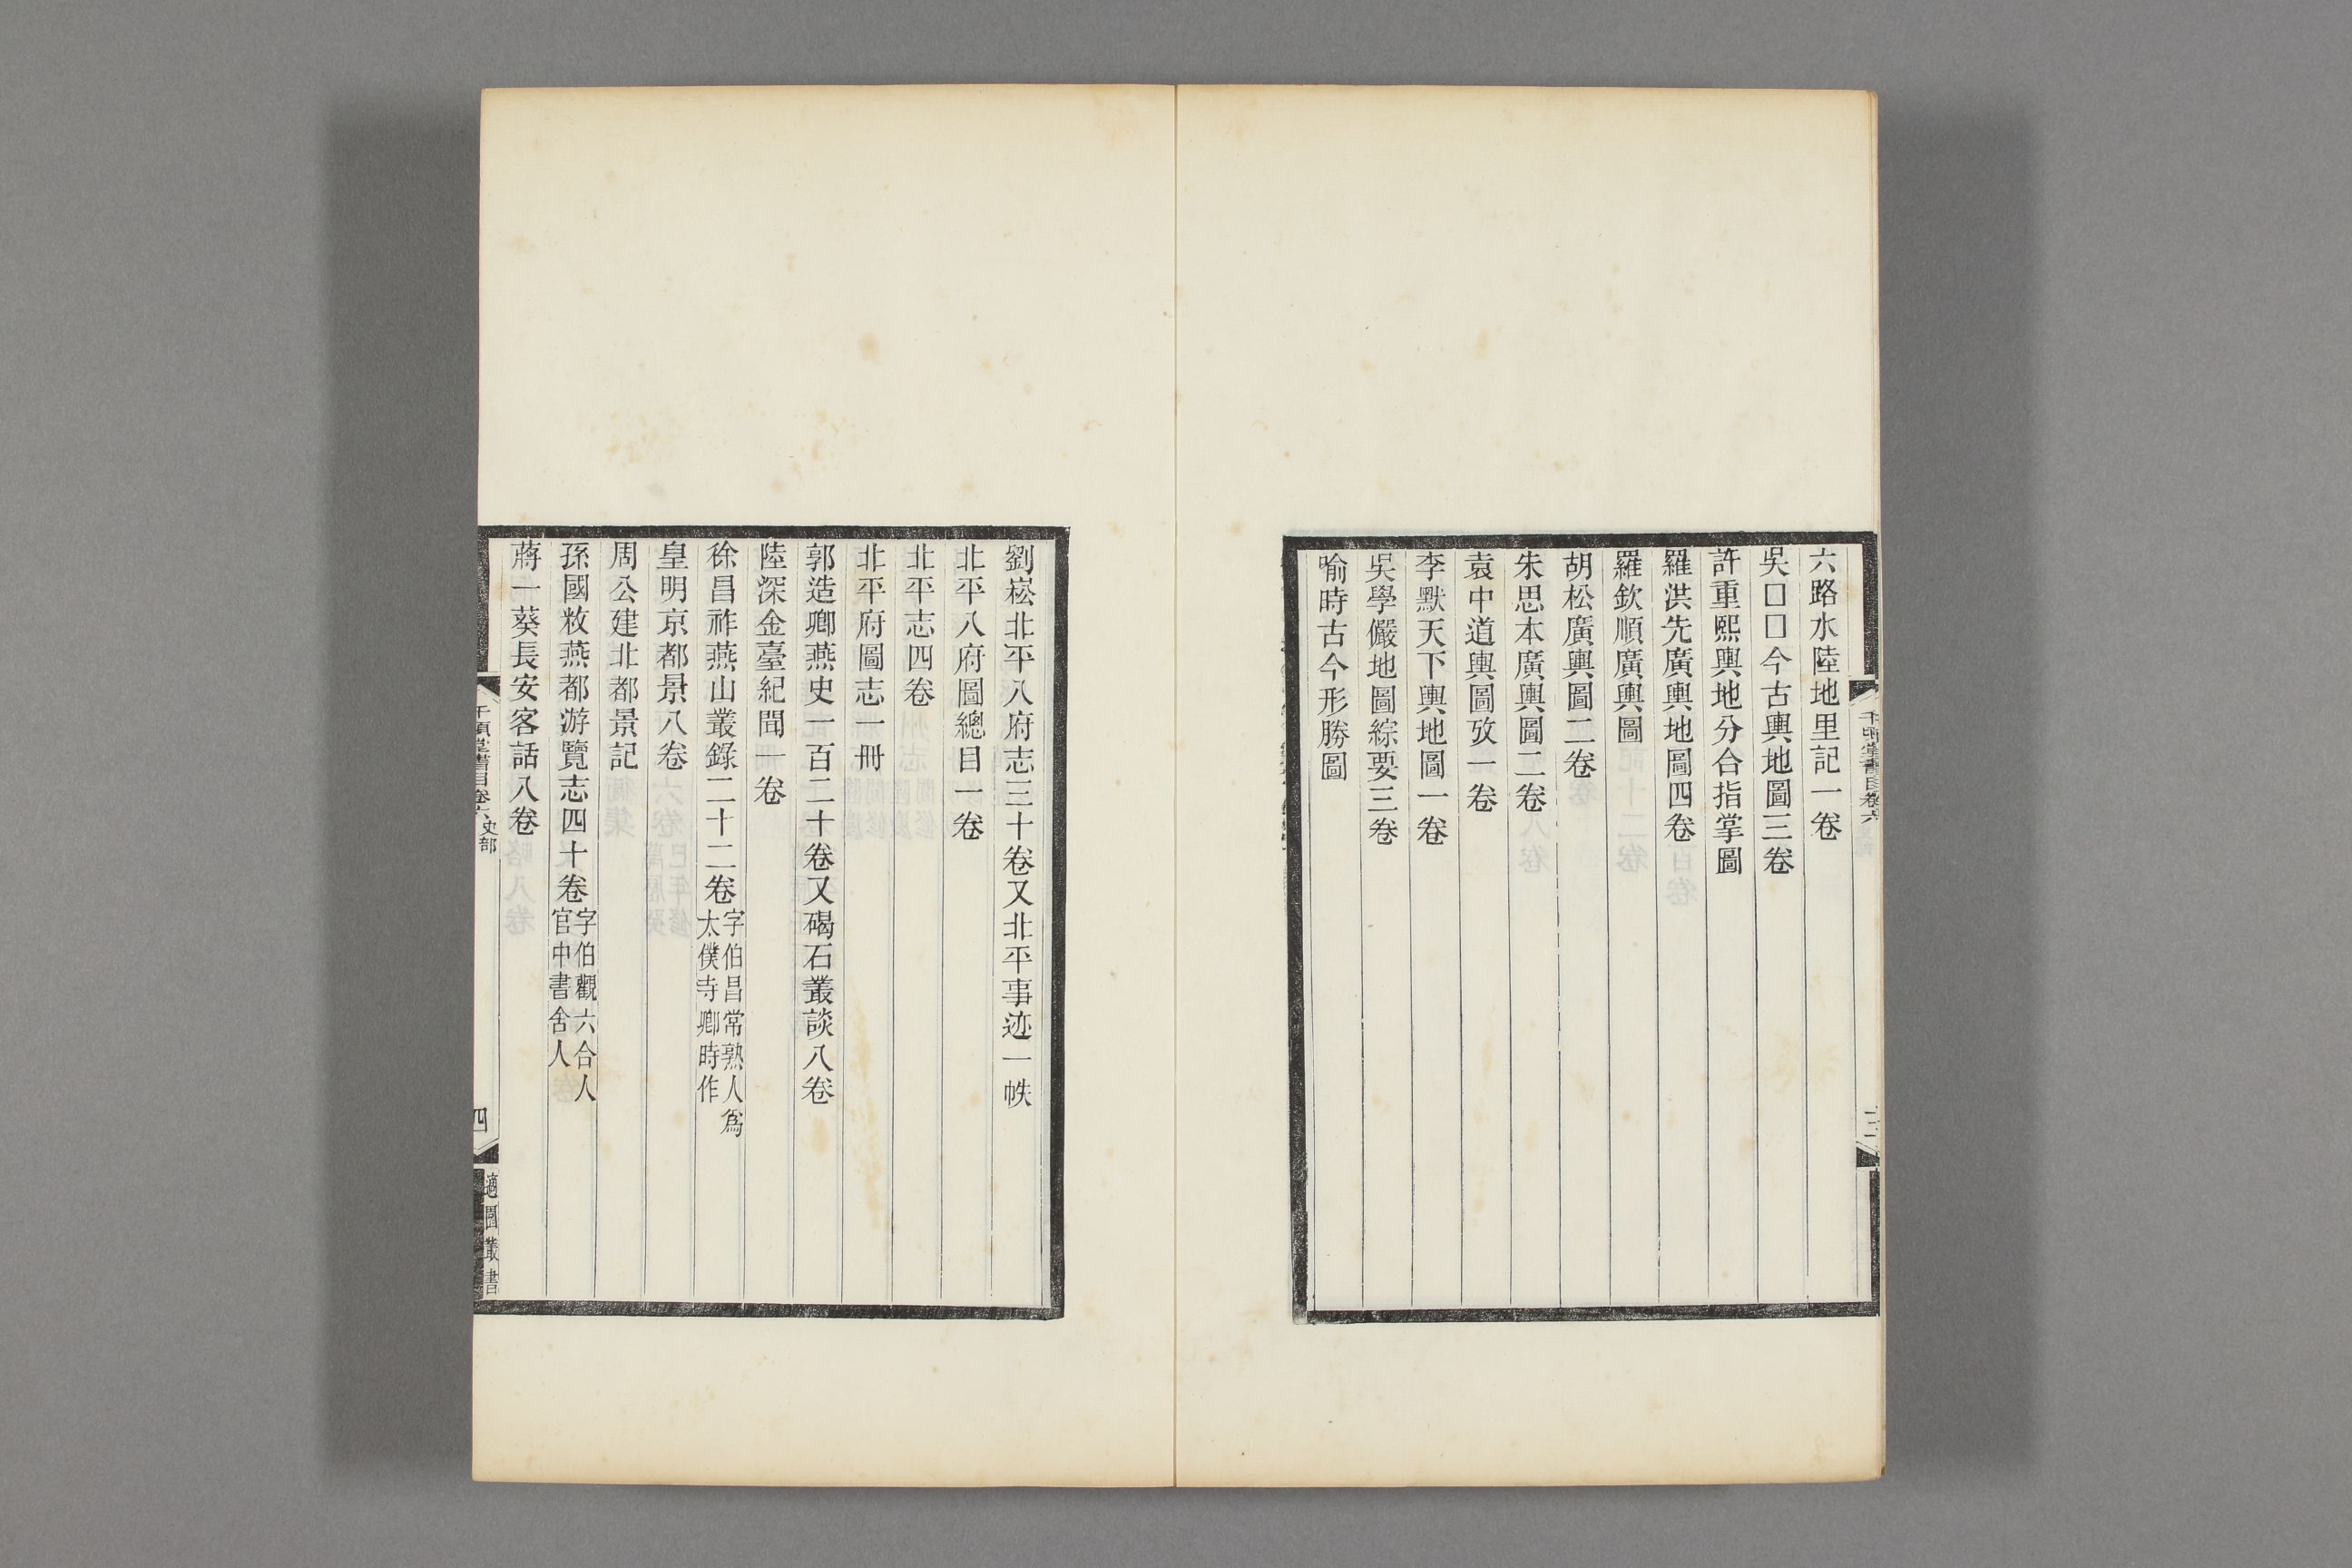 六路水陸地里記一卷
吳□□今古輿地圖三卷
許重熙輿地分合指掌圖
羅洪先廣輿地圖四卷
羅欽順廣輿圖
胡松廣輿圖二卷
朱思本廣輿圖二卷
袁中道輿圖攷一卷
李默天下輿地圖一卷
吳學儼地圖綜要三卷
喻時古今形勝圖
劉崧北平八府志三十卷又北平事迹一帙
北平八府圖總目一卷
北平志四卷
北平府圖志一冊
郭造卿燕史一百二十卷又碣石叢談八卷
陸深金臺紀聞一卷
徐昌祚燕山叢錄二十二卷字伯昌常熟人爲
太僕寺卿時作
皇明京都景八卷
周公建北都景記
孫國敉燕都游覽志四十卷字伯觀六合人
官中書舍人
蔣一葵長安客話八卷
千頃堂書目卷六 史部
四
適園叢書